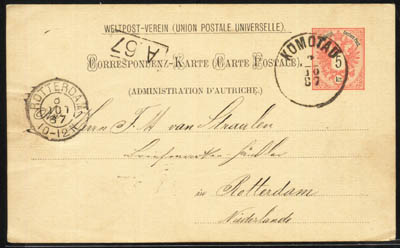 WELTPOST-VEREIN (UNION POSTALE UNIVERSELLE).
A 67
CORRESPONDENZ-KARTE (CARTE POSTALE).
KOMOTAU
10
87
5
(ADMINISTRATION D'AUTRICHE).
ROTTERDAM
10
87
10-12
Herrn F. H van Straulen
Briefmarken händler
in Rotterdam
Niederlande